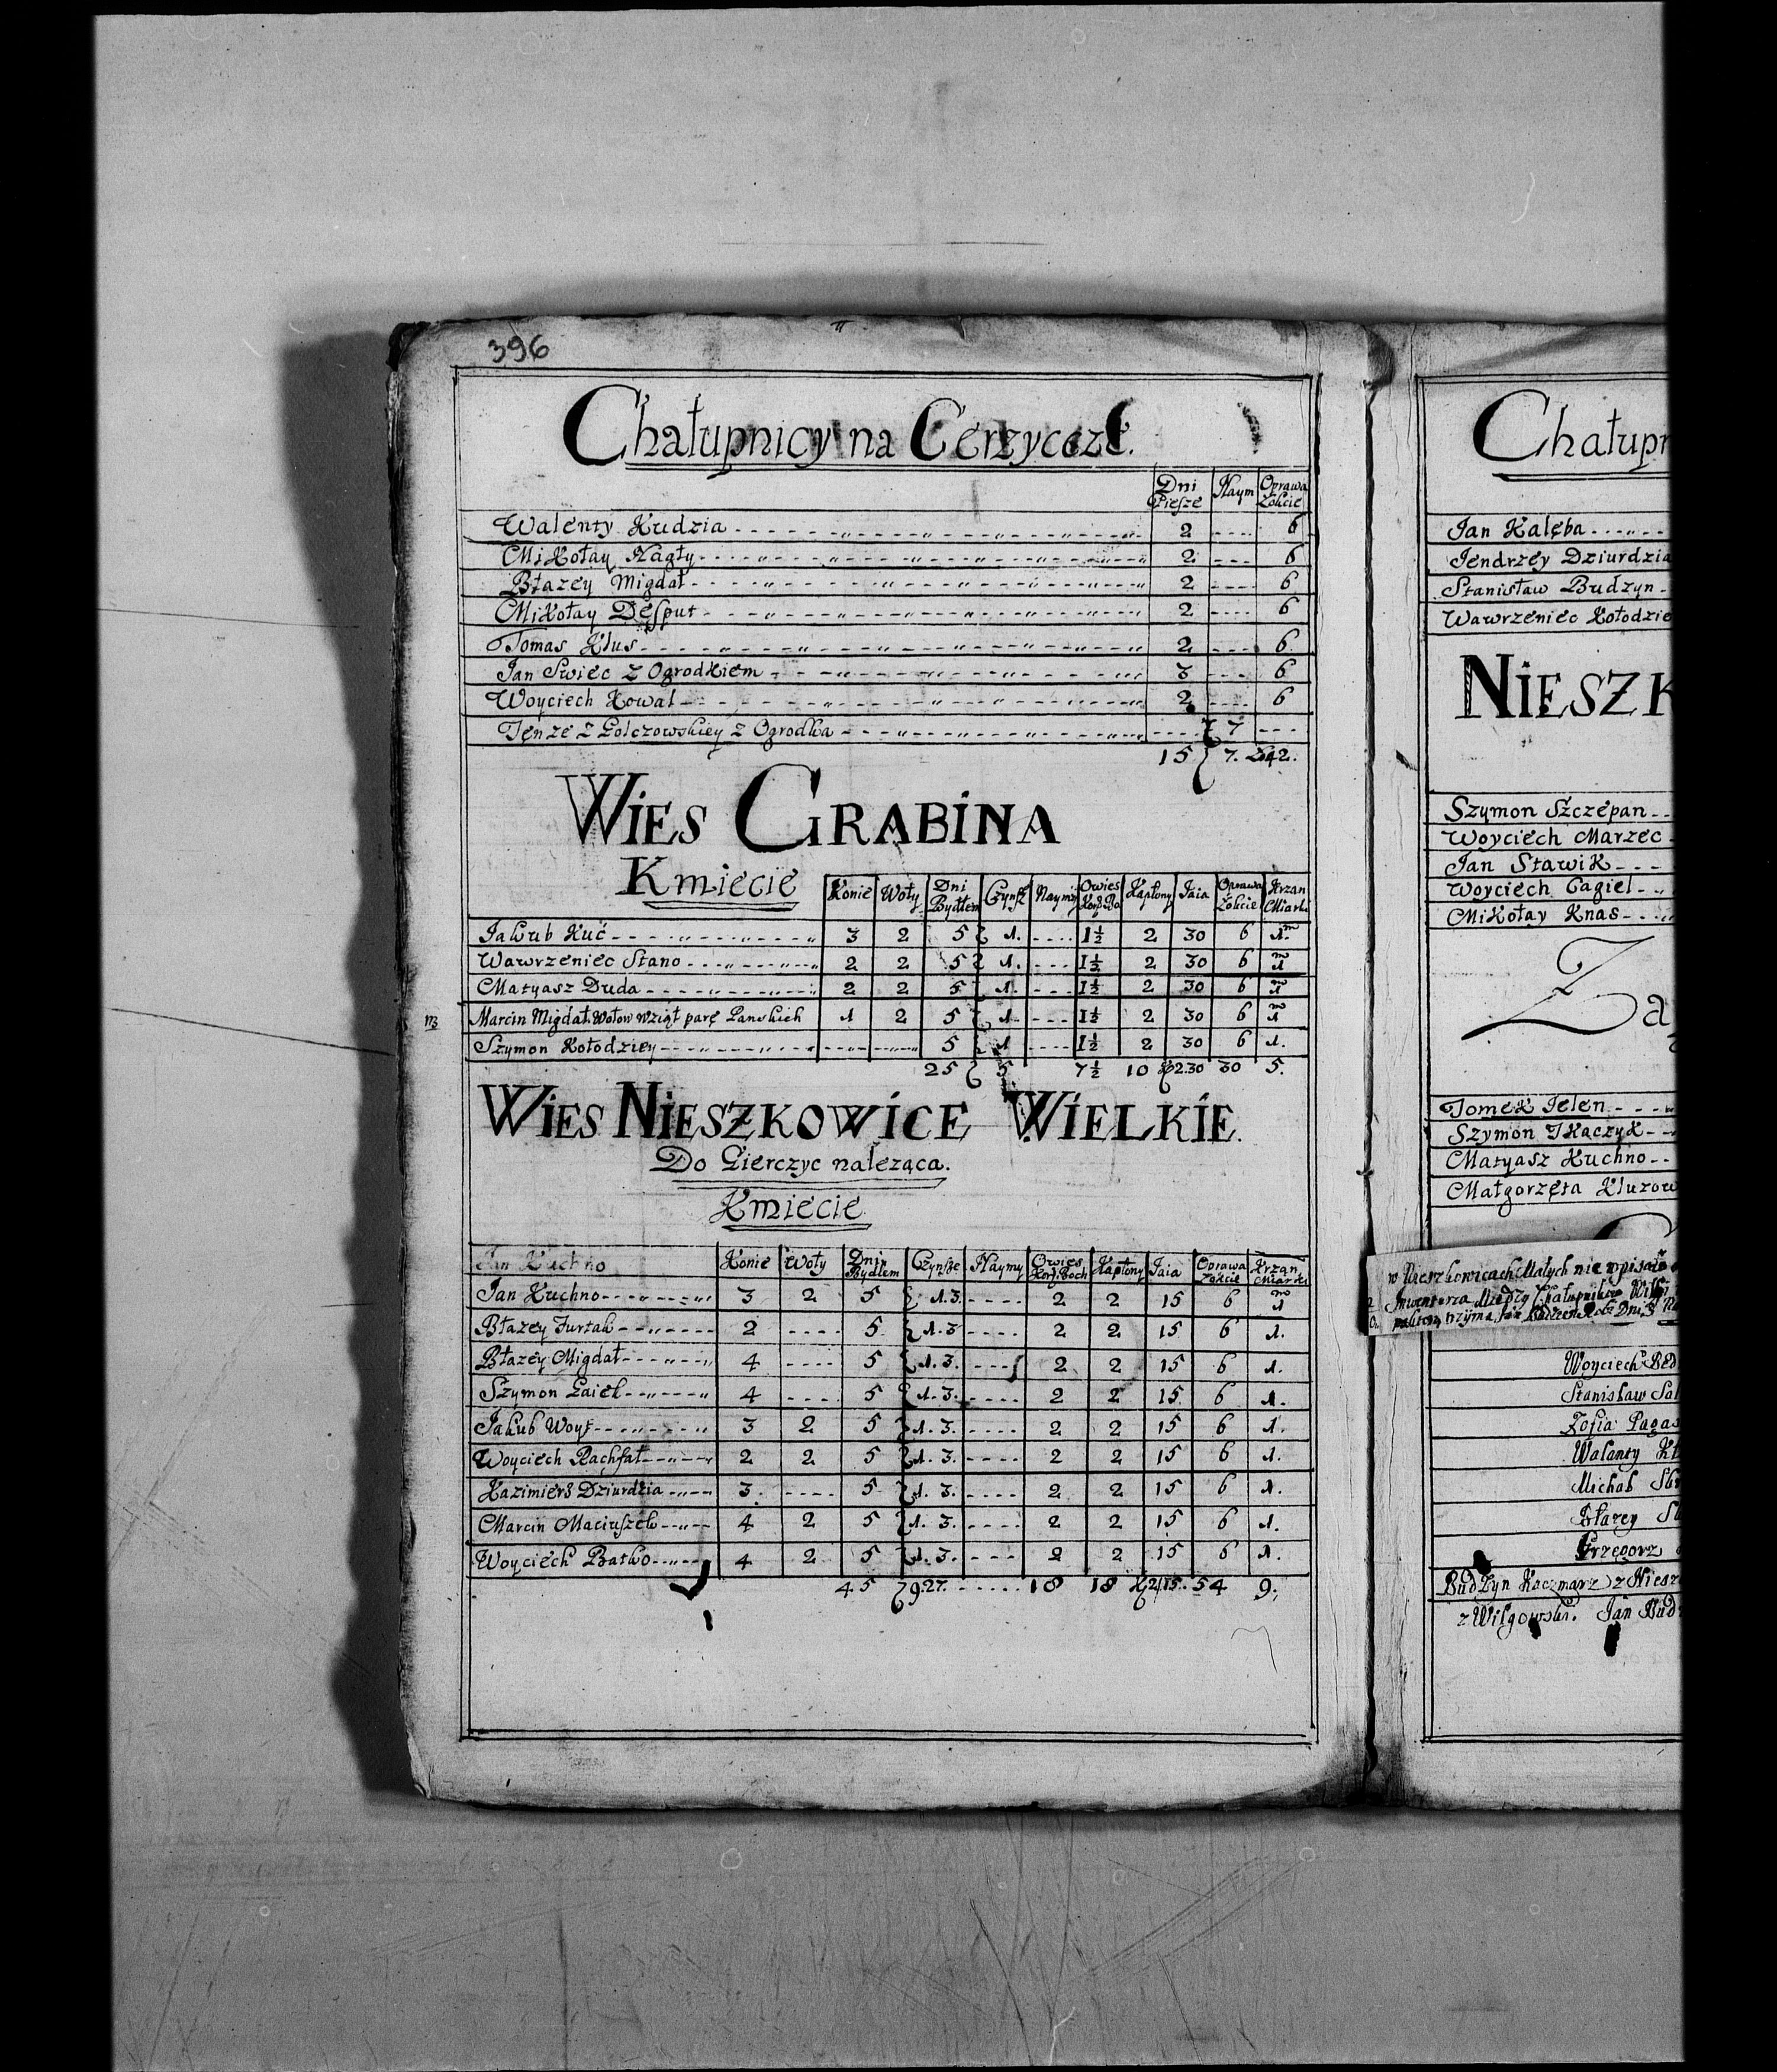 396
Chałupnicy na Gerzycczé.
Dni Piesze Naym Oprawa Łokcie
Walenty Kudzia 2 6
Mikołay Nagły 2 6
Błazey Migdał 2 6
Mikołay Desput 2 6
Tomas Klus 2 6
Jan Swiec z Ogrodkiem 3 6
Woyciech Kowal 2 6
Tenze z Golczowskiey z Ogrodka 7
15 7. 42.
Wies Grabina
Kmiecie
Konie Woły Dni Bydłem Czynsz Naymy Owies Kapłony Iaia Oprawa Łokcie Krzan Miarki
Jakub Kuć 3 2 5 1. 1½ 2 30 6 1.
Wawrzeniec Stano 2 2 5 1. 1½ 2 30 6 1
Matyasz Duda 2 2 5 1. 1½ 2 30 6 1
Marcin Migdał. Wołow wziął parę Panskich 1 2 5 1 1½ 2 30 6 1
Szymon Kołodziey 5 1 1½ 2 30 6 1.
25 5 7½ 10 2.30 30 5.
Wies Nieszkowice Wielkie.
Do Gierczyc naleząca.
Kmiecie
Jan Kuchno Konie Woły Dni Bydłem Czynsze Naymy Owies Kapłony Iaia Oprawa Łokcie Krzan Miarki
Jan Kuchno 3 2 5 1.3. 2 2 15 6 1
Błazey Furtak 2 5. 1.3 2 2 15 6 1.
Błazey Migdał 4 5 1.3. 2 2 15 6 1.
Szymon Gaiek 4 5 1.3. 2 2 15 6 1.
Jakub Woys 3 2 5 1.3. 2 2 15 6 1.
Woyciech Rachfał 2 2 5 1.3. 2 2 15 6 1.
Kazimierz Dziurdzia 3. 5 1.3. 2 2 15 6 1.
Marcin Maciuszek 4 2 5 1.3. 2 2 15 6 1.
Woyciech Batko 4 2 5 1.3. 2 2 15 6 1.
45 9.27. 18 18 2.15. 54 9.
Chałupn
Jan Kalęba
Jendrzey Dziurdzia
Stanisław Budzyn
Wawrzeniec Kołodzie
Nieszk
Szymon Szczepan
Woyciech Marzec
Jan Stawik
Woyciech Gagiel
Mikołay Knas
Za
Tomek Jelen
Szymon Tkaczyk
Matyasz Kuchno
Małgorzęta Kluzow
w Nieszkowicach Małych nie wpisało
Inwentarza Między Chałupnikow
Woyciech Bed
Stanisław Sal
Zofia Pagas
Walanty
Michał
Błazey
Grzegorz
Budzyn Kaczmarz z Niesz
z Wilgowski. Jan Bud